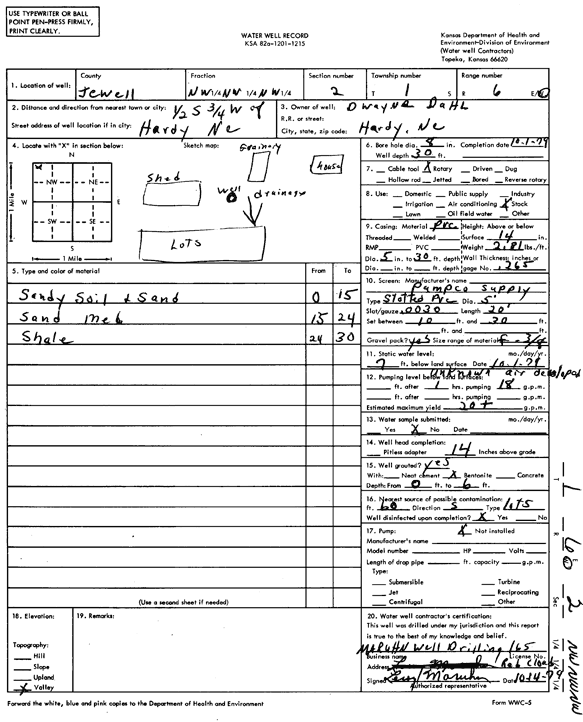 USE TYPEWRITER OR BALL
POINT PEN-PRESS FIRMLY,
PRINT CLEARLY.
WATER WELL RECORD
KSA 82a-1201-1215
Kansas Department of Health and
Environment-Division of Environment
(Water well Contractors)
Topeka, Kansas 66620
1. Location of well: County Jewell Fraction NW 1/4 NW 1/4 NW 1/4 Section number 2 Township number T 1 S Range number R 6 E/W
2. Distance and direction from nearest town or city: 1/2 S 3/4 W of
Street address of well location if in city: Hardy Ne
3. Owner of well: Dwayne Dahl
R.R. or street:
City, state, zip code: Hardy, Ne
4. Locate with "X" in section below: Sketch map:
N
NW NE
W E
SW SE
S
1 Mile
1 Mile
Shed
Grainery
house
Well
drainage
Lots
6. Bore hole dia. 8 in. Completion date 10-1-79
Well depth 30 ft.
7. Cable tool X Rotary Driven Dug
Hollow rod Jetted Bored Reverse rotary
8. Use: Domestic Public supply Industry
Irrigation Air conditioning X Stock
Lawn Oil field water Other
9. Casing: Material PVC Height: Above or below
Threaded Welded Surface 14 in.
RMP PVC Weight 2.81 lbs./ft.
Dia. 5 in. to 30 ft. depth Wall Thickness: inches or
Dia. in. to ft. depth gage No. .265
5. Type and color of material From To
Sandy Soil & Sand 0 15
Sand Med 15 24
Shale 24 30
(Use a second sheet if needed)
10. Screen: Manufacturer's name
Pumpco Supply
Type Slotted PVC Dia. 5"
Slot/gauze .0030 Length 20'
Set between 10 ft. and 30 ft.
ft. and ft.
Gravel pack? yes Size range of material F-3/8
11. Static water level: mo./day/yr.
7 ft. below land surface Date 10-1-79
12. Pumping level below land surfaces: unknown air developed
ft. after 1 hrs. pumping 18 g.p.m.
ft. after hrs. pumping g.p.m.
Estimated maximum yield 20+ g.p.m.
13. Water sample submitted: mo./day/yr.
Yes X No Date
14. Well head completion:
Pitless adapter 14 Inches above grade
15. Well grouted? yes
With: Neat cement X Bentonite Concrete
Depth: From 0 ft. to 6 ft.
16. Nearest source of possible contamination:
ft. 60 Direction S Type lots
Well disinfected upon completion? X Yes No
17. Pump: X Not installed
Manufacturer's name
Model number HP Volts
Length of drop pipe ft. capacity g.p.m.
Type:
Submersible Turbine
Jet Reciprocating
Centrifugal Other
18. Elevation:
Topography:
Hill
Slope
Upland
X Valley
19. Remarks:
20. Water well contractor's certification:
This well was drilled under my jurisdiction and this report
is true to the best of my knowledge and belief.
Maruhn Well Drilling 165
Business name License No.
Address Red Cloud
Signed Maruhn Date 10-14-79
Authorized representative
T 1 R 6 E W Sec 2 1/4 1/4 1/4 NW NW NW
Forward the white, blue and pink copies to the Department of Health and Environment
Form WWC-5